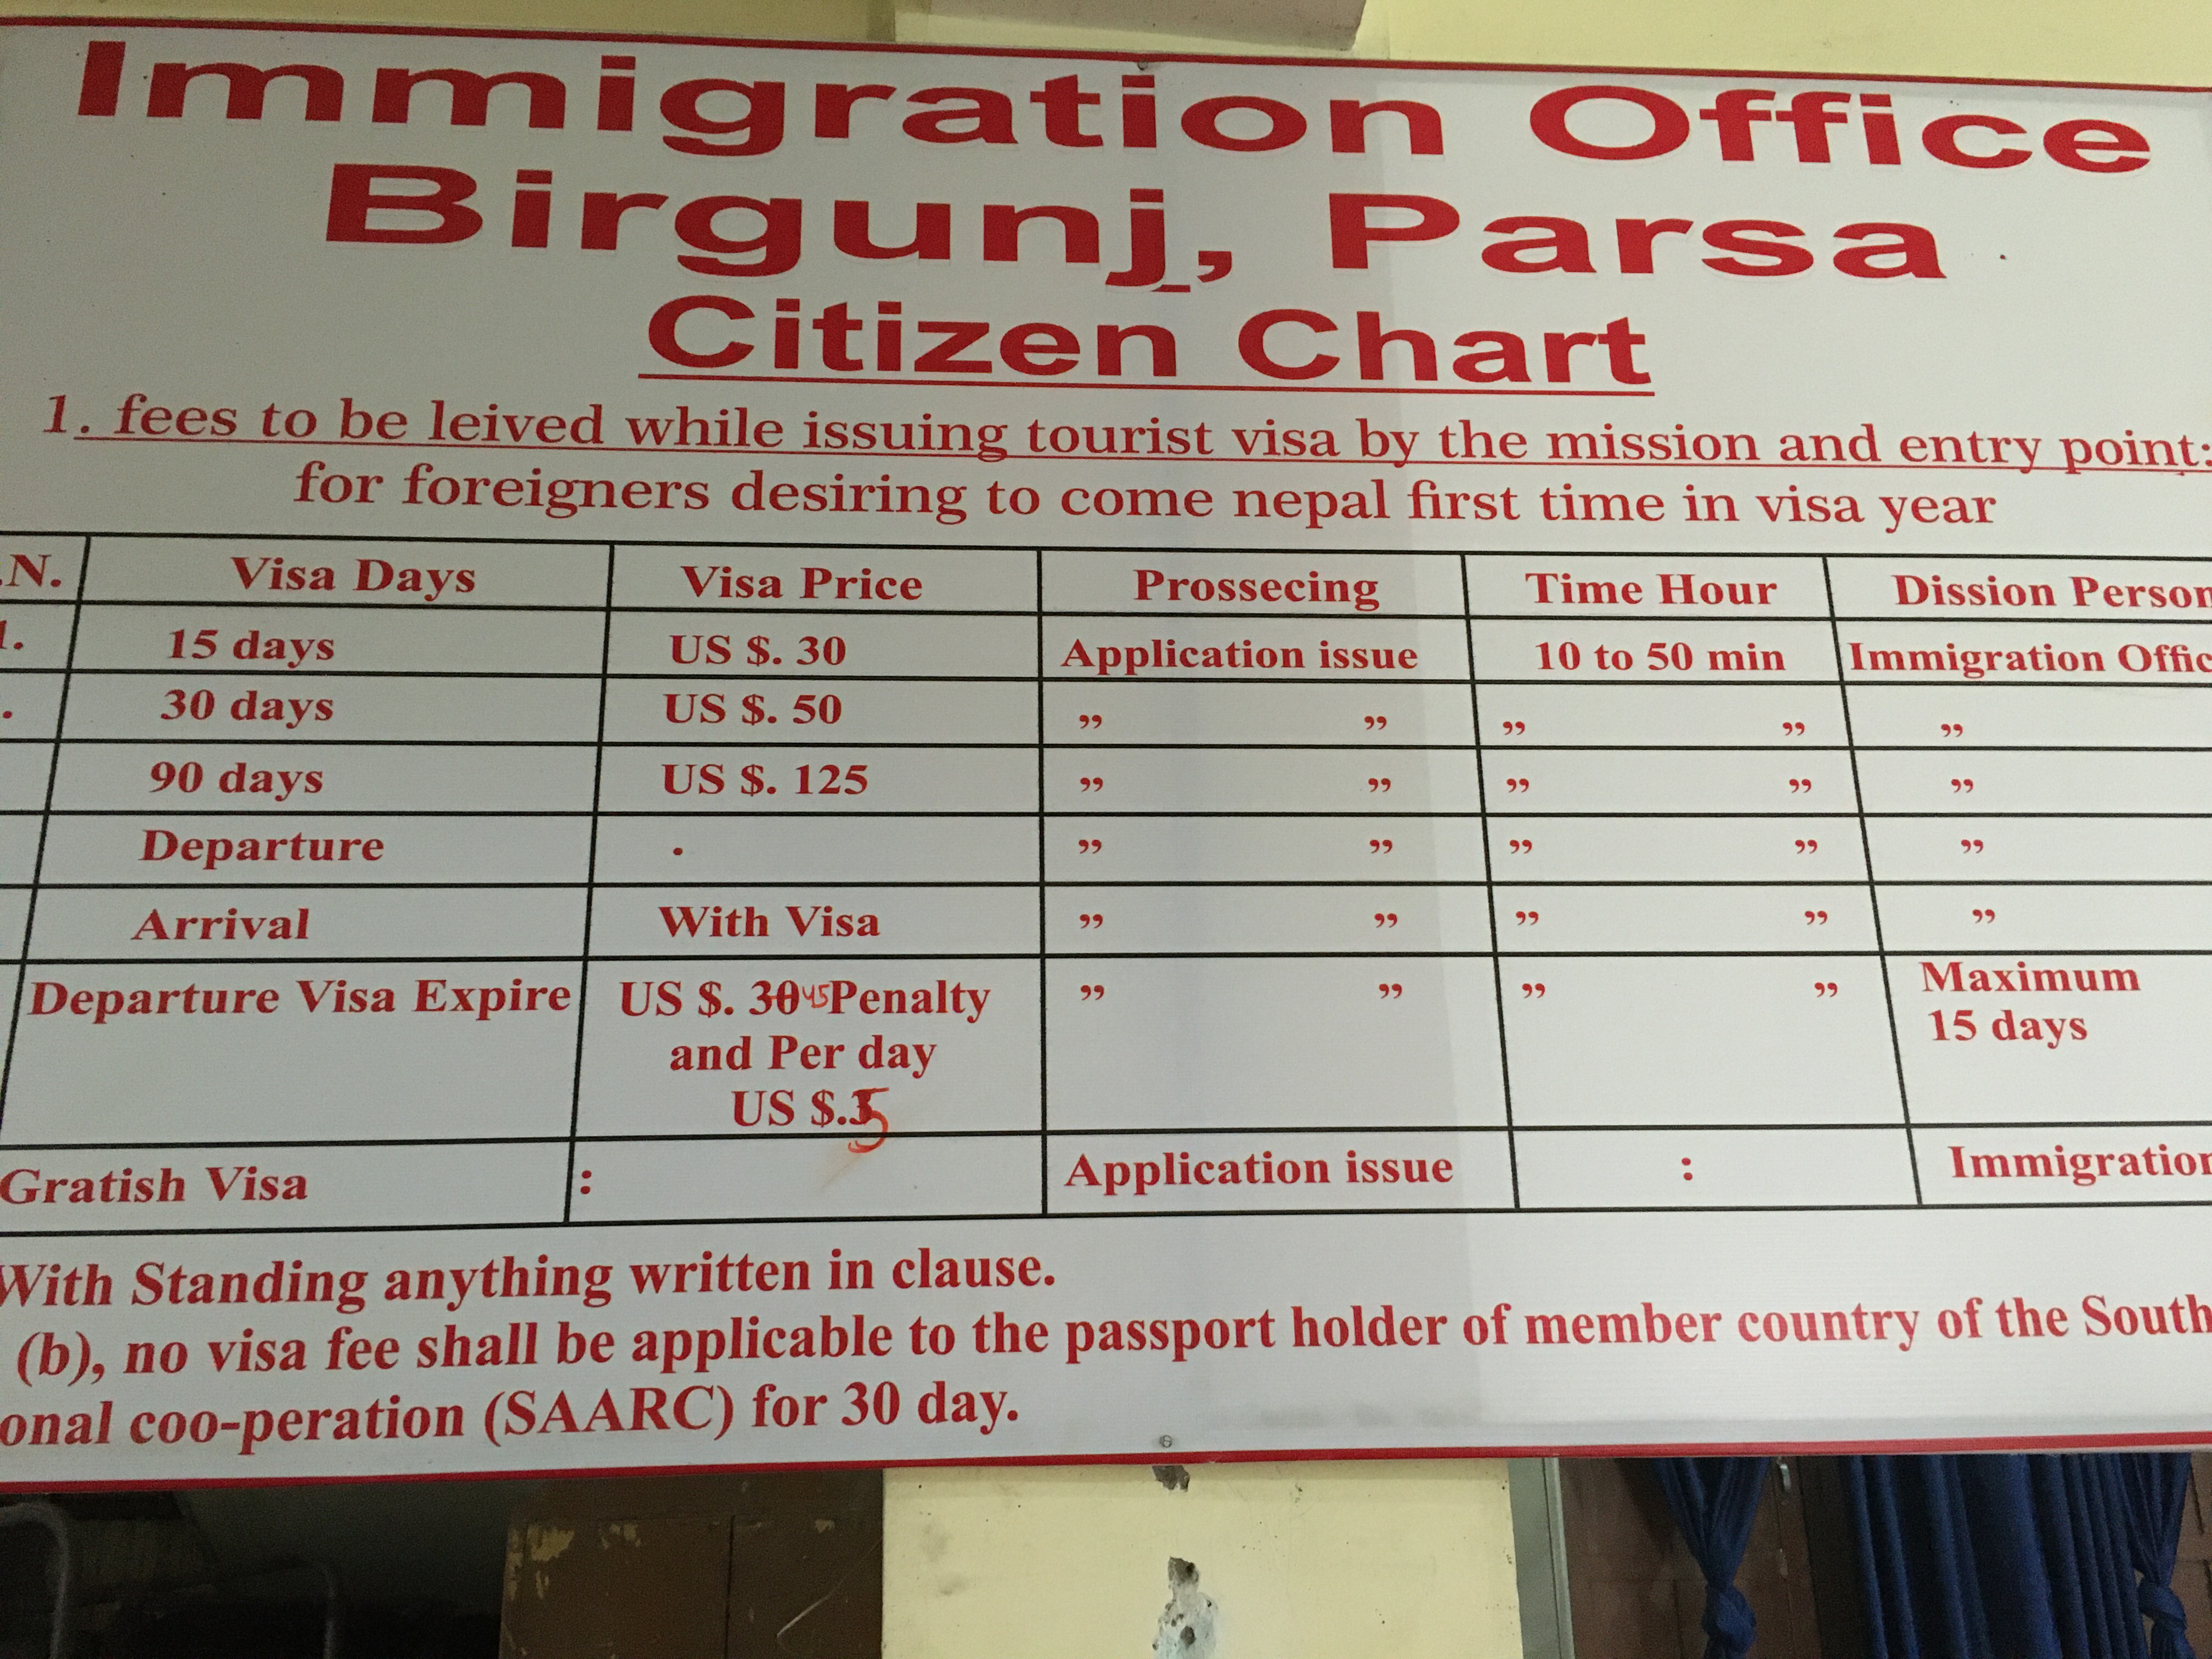 Immigration Office
Birgunj, Parsa
Citizen Chart
1. fees to be leived while issuing tourist visa by the mission and entry point:
for foreigners desiring to come nepal first time in visa year
.N. Visa Days Visa Price Prossecing Time Hour Dission Person
1. 15 days US $. 30 Application issue 10 to 50 min Immigration Offic
. 30 days US $. 50 ” ” ” ” ”
90 days US $. 125 ” ” ” ” ”
Departure . ” ” ” ” ”
Arrival With Visa ” ” ” ” ”
Departure Visa Expire US $. 30 45 Penalty ” ” ” ” Maximum
and Per day 15 days
US $. 5
Gratish Visa : Application issue : Immigration
With Standing anything written in clause.
(b), no visa fee shall be applicable to the passport holder of member country of the South
onal coo-peration (SAARC) for 30 day.